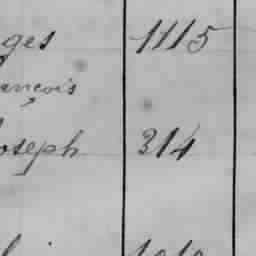 ges 1115
ançois
oseph 314